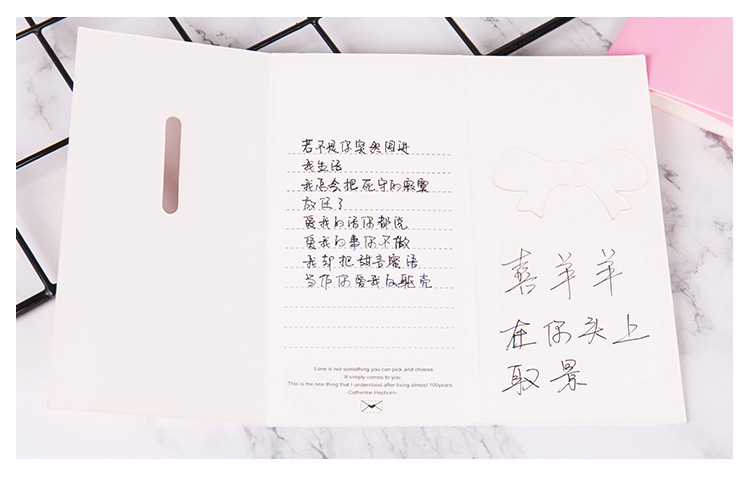 若不是你突然闯进
我生活
我怎会把死守的寂寞
放任了
爱我的话你都说
爱我的事你不做
我却把甜言蜜语
当作你爱我的躯壳
Love is not something you can pick and choose
It simply comes to you
This is the one thing that I understood after living almost 100years.
-Catherine Hepburn-
喜羊羊
在你头上
取景